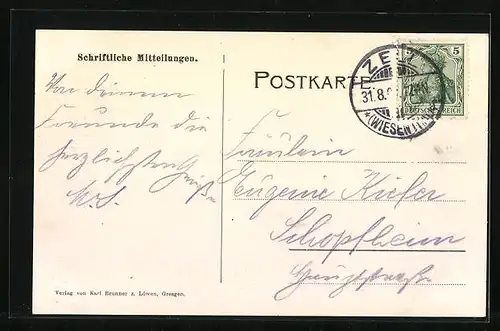 Schriftliche Mitteilungen.
Von deinem
Freunde die
herzlichsten Grüße
POSTKARTE
ZELL
31.8.0
*(WIESENTHAL)
5 5
DEUTSCHES REICH
Fräulein
Eugenie Kiefer
Schopfheim
Hauptstraße
Verlag von Karl Brunner z. Löwen, Gresgen.